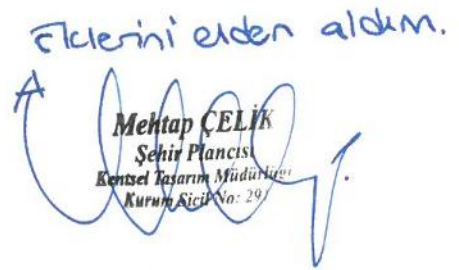 Eklerini elden aldım.
Mehtap ÇELİK
Şehir Plancısı
Kentsel Tasarım Müdürlüğü
Kurum Sicil No: 29